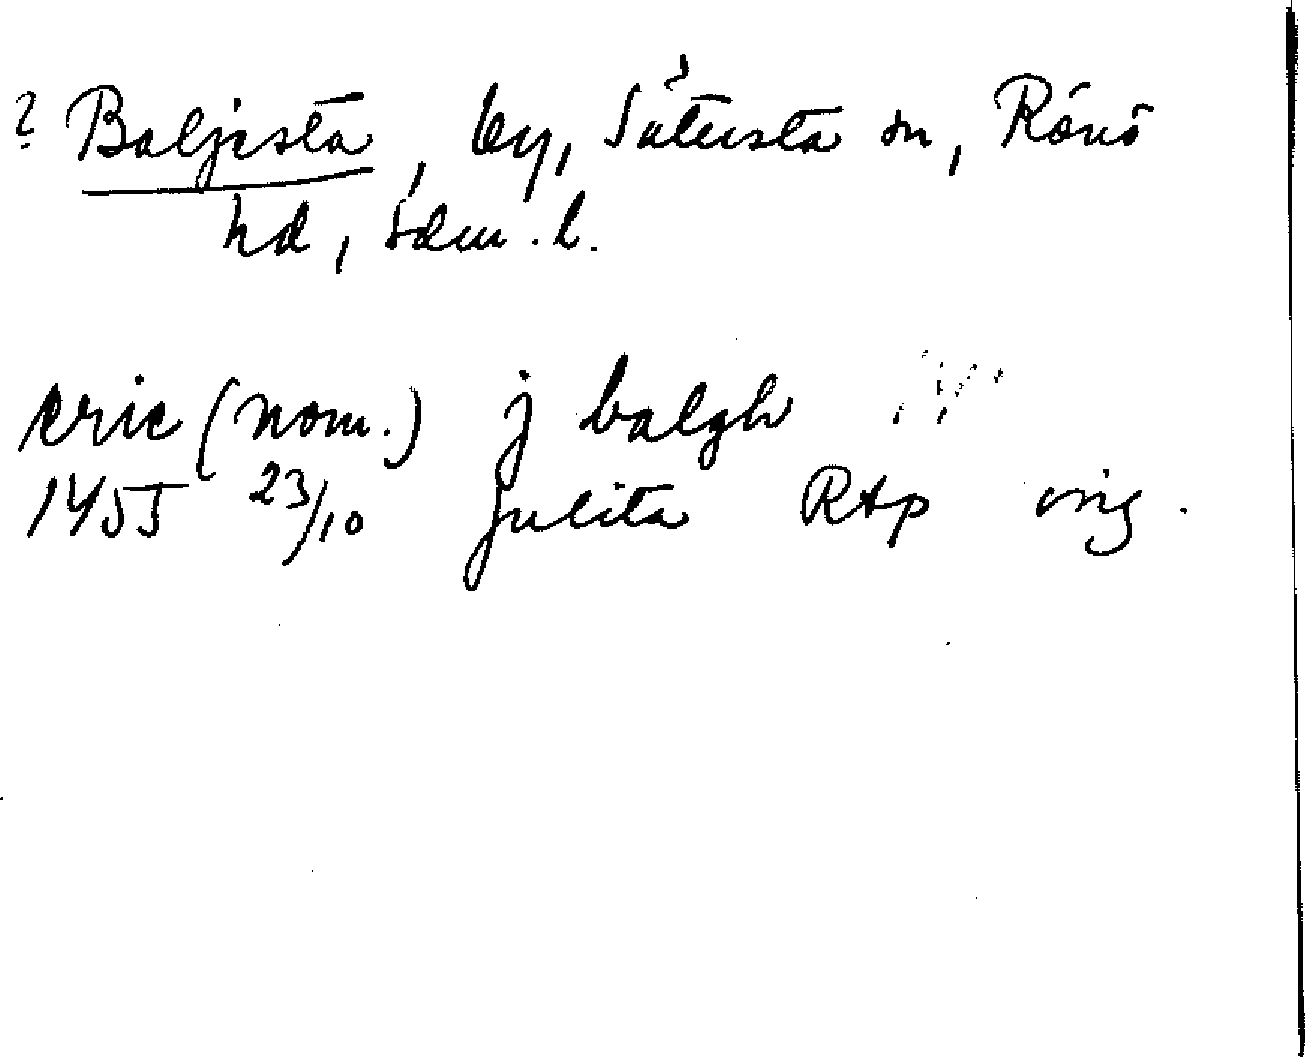 ? Baljesta, by, Sättersta sn, Rönö
hd, Sdm. l.
eric (nom.) j balgh
1455 23/10 Julita RAp orig.